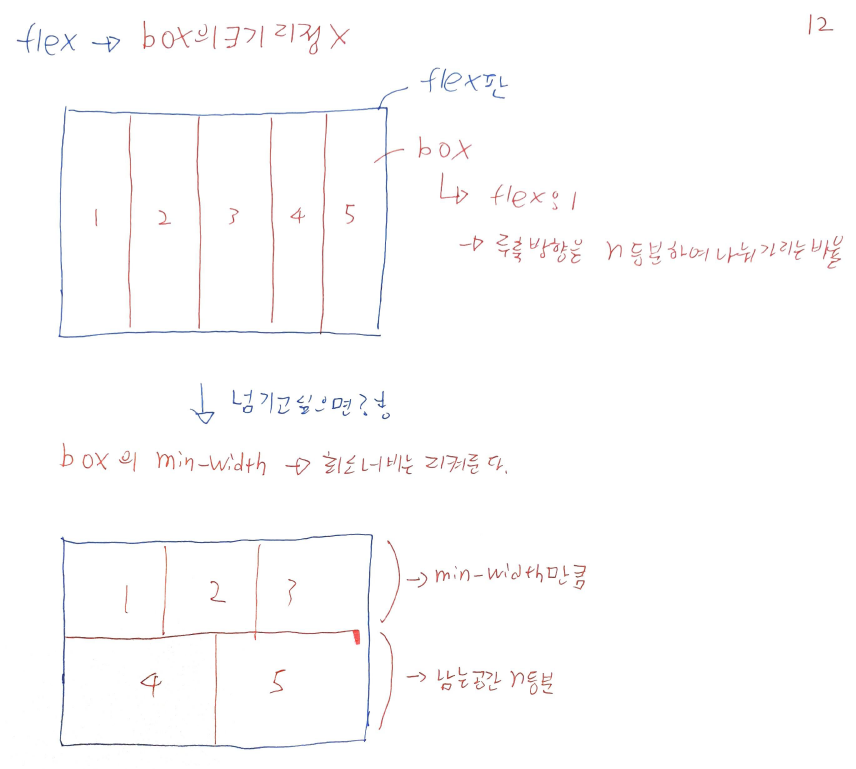 12
flex → box의 크기 지정 X
flex판
box
↳ flex : 1
→ 주축방향을 n등분하여 나눠가지는 비율
1 2 3 4 5
↓ 넘기고싶으면?
box의 min-width → 최소너비는 지켜준다.
1 2 3
→ min-width만큼
4 5
→ 남는공간 n등분